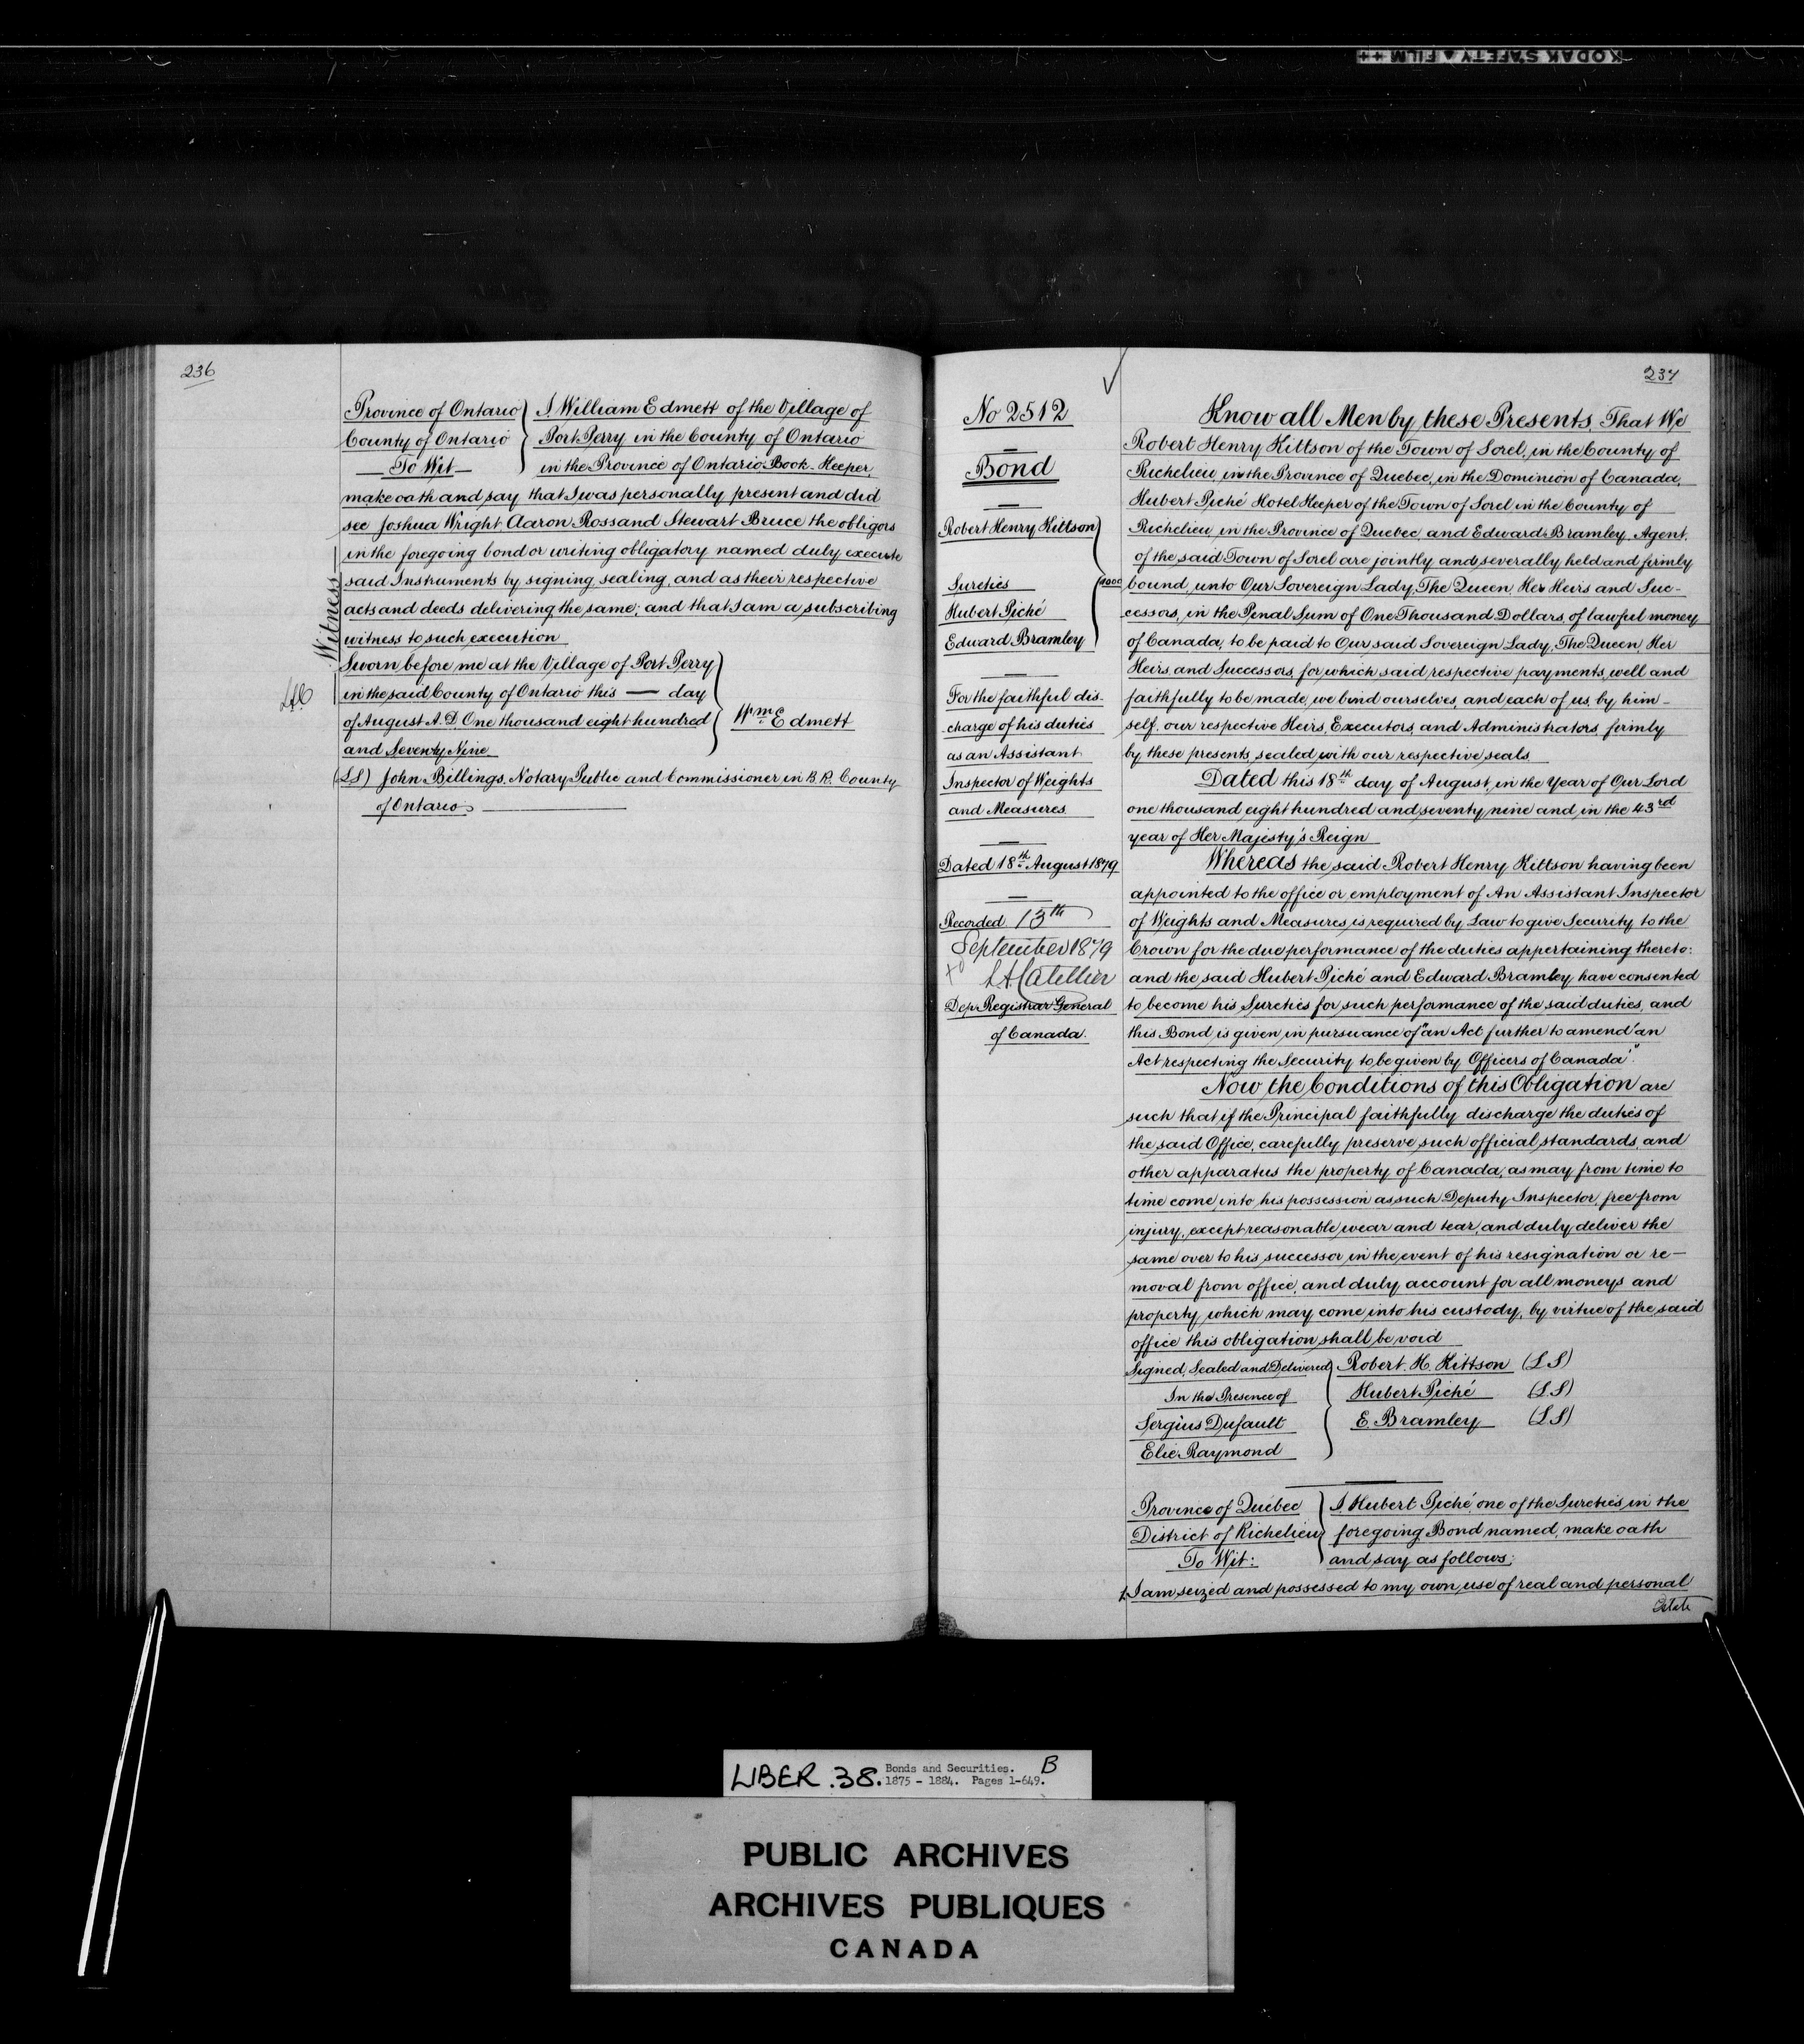 KODAK SAFETY A FILM ++
236
Province of Ontario I William Edmett of the Village of
County of Ontario Port Perry in the County of Ontario
To Wit in the Province of Ontario Book-Keeper,
make oath and say that I was personally present and did
see Joshua Wright Aaron Ross and Stewart Bruce the obligors
in the foregoing bond or writing obligatory named duly execute
said Instruments by signing, sealing, and as their respective
acts and deeds delivering the same; and that I am a subscribing
witness to such execution
Witness
Sworn before me at the Village of Port Perry
in the said County of Ontario this — day
of August A.D. One thousand eight hundred Wm. Edmett
and Seventy Nine
(LS) John Billings, Notary Public and Commissioner in B.R. County
of Ontario
237
No 2512
Bond
Robert Henry Kittson
Sureties
Hubert Piché
Edward Bramley
1000
For the faithful dis-
charge of his duties
as an Assistant
Inspector of Weights
and Measures.
Dated 18th August 1879
Recorded 15th
September 1879
LACatellier
Dep Registrar General
of Canada.
Know all Men by these Presents, That We
Robert Henry Kittson of the Town of Sorel, in the County of
Richelieu, in the Province of Quebec, in the Dominion of Canada,
Hubert Piché Hotel Keeper of the Town of Sorel in the County of
Richelieu, in the Province of Quebec, and Edward Bramley, Agent,
of the said Town of Sorel are jointly and severally held and firmly
bound, unto Our Sovereign Lady, The Queen, Her Heirs and Suc-
cessors, in the Penal Sum of One Thousand Dollars, of lawful money
of Canada, to be paid to Our said Sovereign Lady, The Queen, Her
Heirs, and Successors, for which said respective payments, well and
faithfully to be made, we bind ourselves, and each of us, by him-
self, our respective Heirs, Executors, and Administrators, firmly
by these presents, sealed with our respective seals.
Dated this 18th day of August, in the Year of Our Lord
one thousand eight hundred and seventy nine and in the 43rd
year of Her Majesty's Reign
Whereas the said Robert Henry Kittson having been
appointed to the office or employment of An Assistant Inspector
of Weights and Measures is required by Law to give Security to the
Crown for the due performance of the duties appertaining thereto:
and the said Hubert Piché and Edward Bramley have consented
to become his Sureties for such performance of the said duties, and
this Bond is given in pursuance of "an Act further to amend "an
Act respecting the Security to be given by Officers of Canada".
Now the Conditions of this Obligation are
such that if the Principal faithfully discharge the duties of
the said Office, carefully preserve such official standards, and
other apparatus the property of Canada, as may from time to
time come into his possession as such Deputy Inspector, free from
injury, except reasonable wear and tear, and duly deliver the
same over to his successor in the event of his resignation or re-
moval from office, and duly account for all moneys and
property which may come into his custody, by virtue of the said
office this obligation shall be void
Signed, Sealed and Delivered Robert. H. Kittson (LS)
In the Presence of Hubert Piché (LS)
Sergius Dufault E. Bramley (LS)
Elie Raymond
Province of Quebec I, Hubert Piché, one of the Sureties, in the
District of Richelieu foregoing Bond named, make oath
To Wit: and say as follows;
1. I am seized and possessed to my own use of real and personal
Estate
LIBER .38. Bonds and Securities. B
1875 - 1884. Pages 1-649.
PUBLIC ARCHIVES
ARCHIVES PUBLIQUES
CANADA